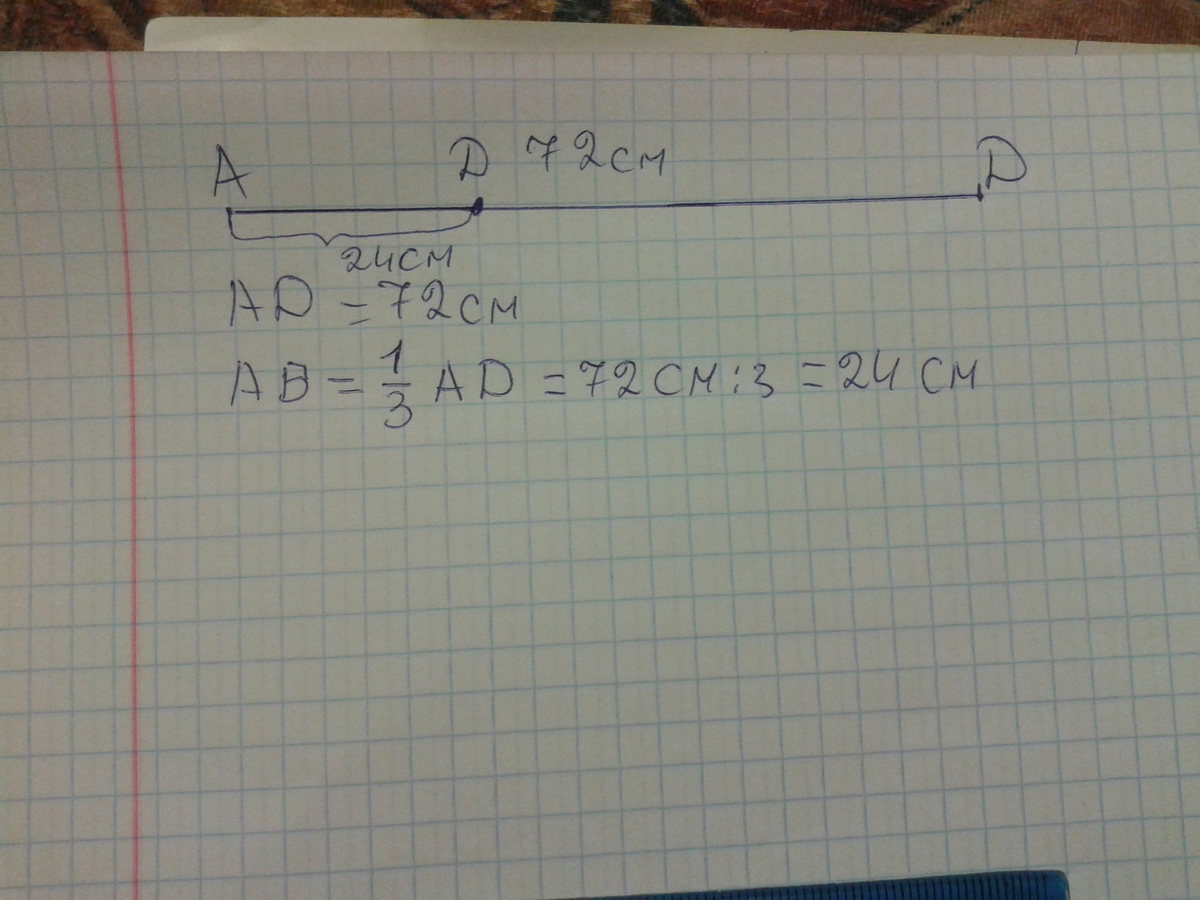 A D 72см D
24см
AD = 72см
AB = 1/3 AD = 72см:3 = 24 см